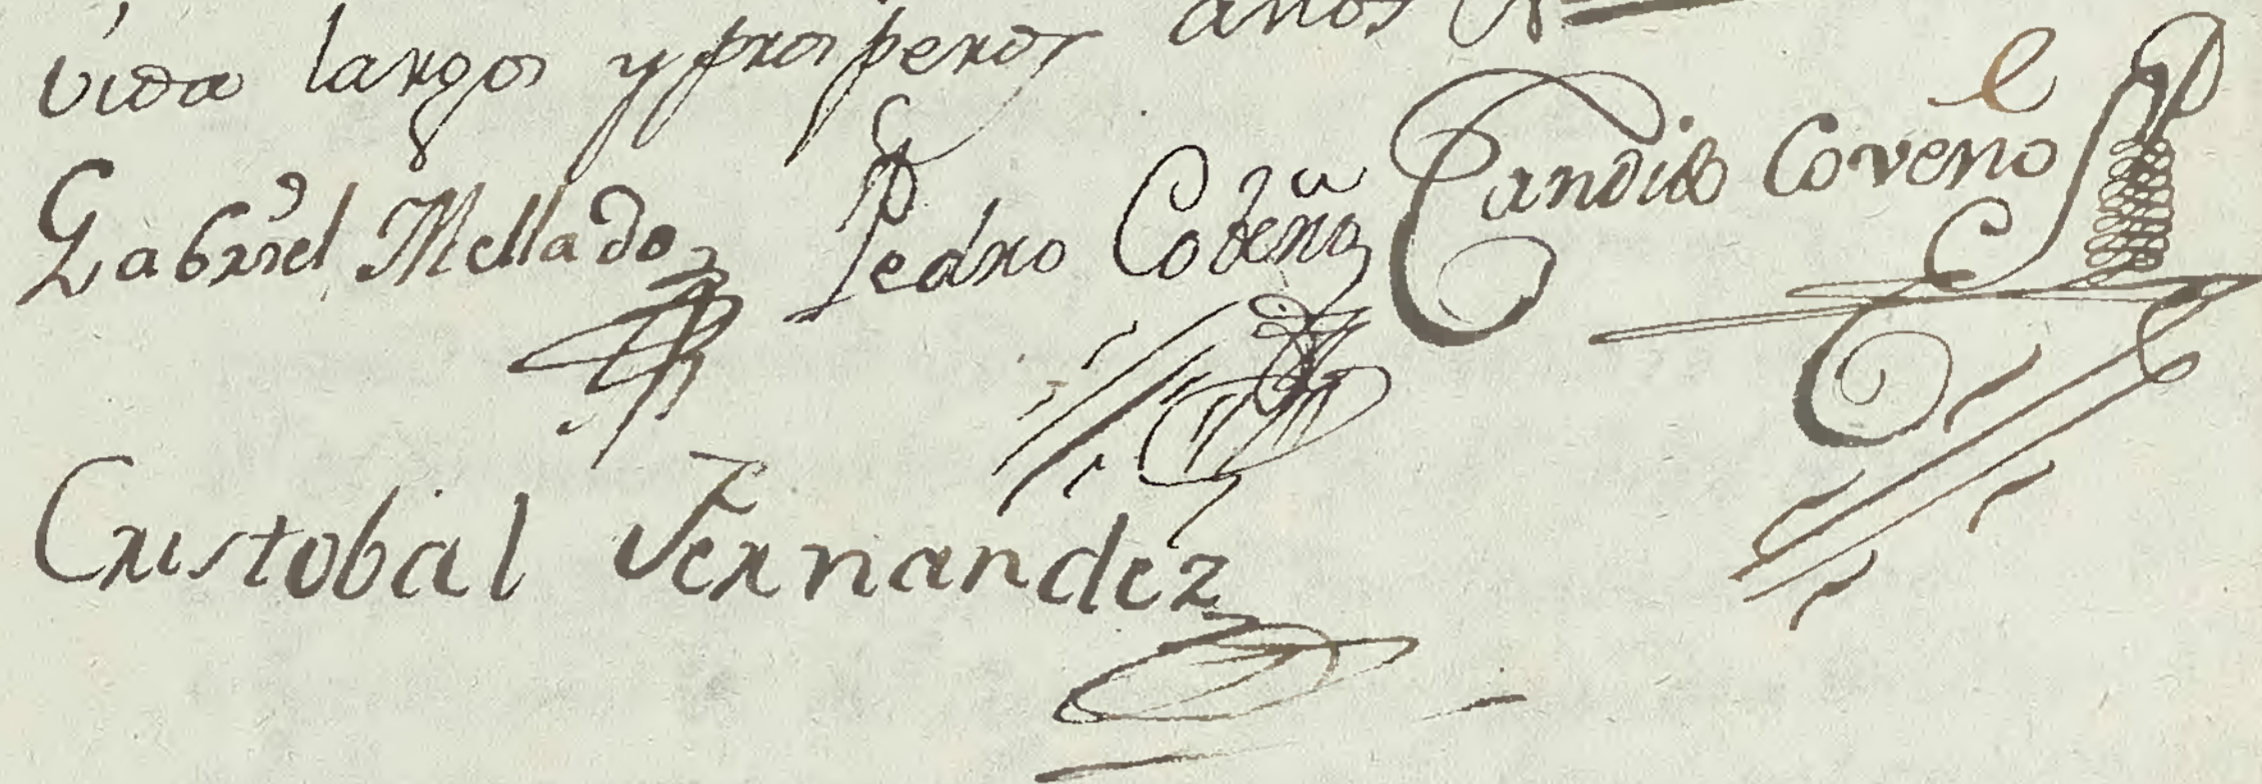 vida largos y prosperos años
Gabriel Mellado Pedro Cobeña Candido Coveno
Cristobal Fernandez